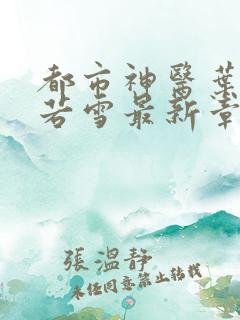 都市神醫葉
若雪最新章
張溫靜
未經同意禁止轉載